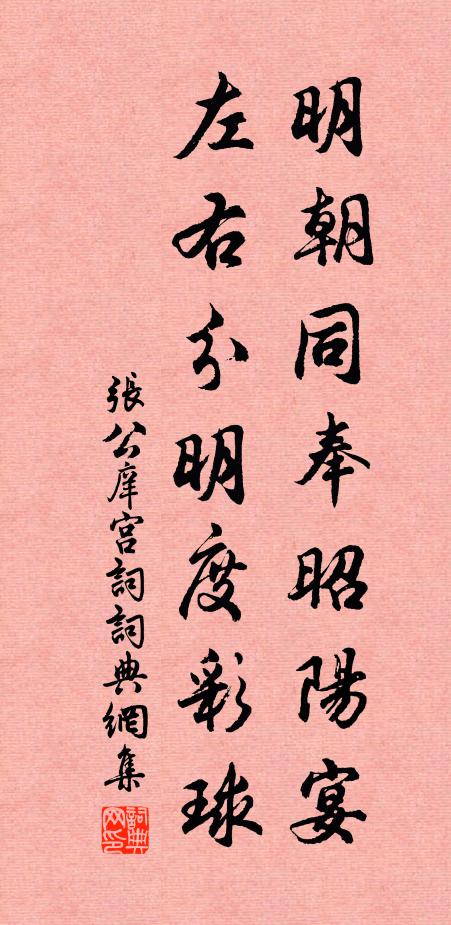 明朝同奉昭陽宴
左右分明度彩球
張公庠宮詞詞典網集
詞典网印